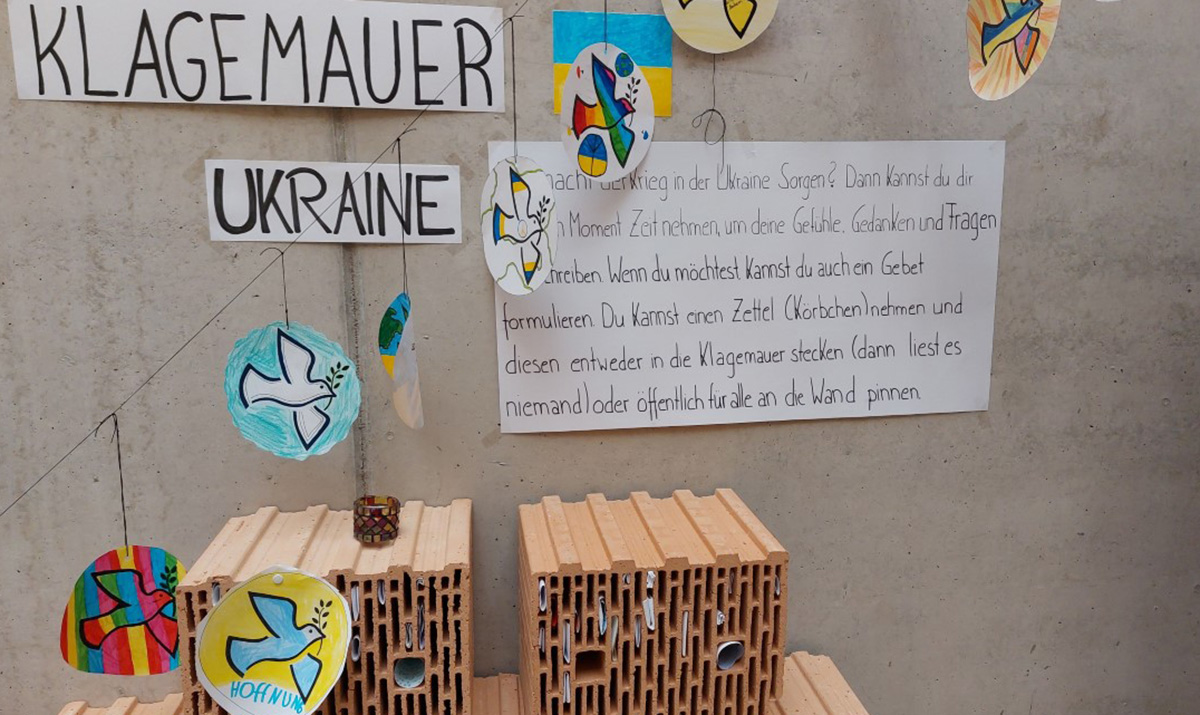 KLAGEMAUER
UKRAINE
Krieg in der Ukraine Sorgen? Dann Kannst du dir
Moment Zeit nehmen, um deine Gefühle, Gedanken und Fragen
Wenn du möchtest Kannst du auch ein Gebet
formulieren. Du Kannst einen Zettel (Körbchen) nehmen und
diesen entweder in die Klagemauer stecken (dann liest es
niemand) oder öffentlich für alle an die Wand pinnen.
HOFFNUNG